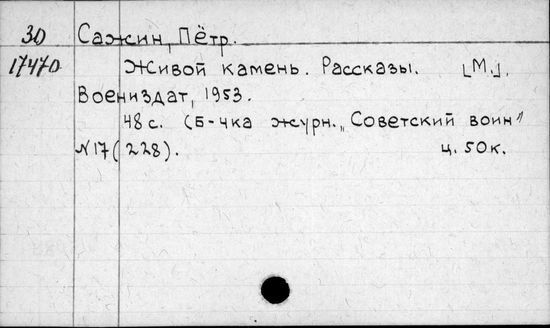 30 Сажин, Пётр.
17470 Живой камень. Рассказы. [М.].
Воениздат, 1953.
48 с. (Б-чка журн. „Советский воин"
N17(228). ц. 50к.